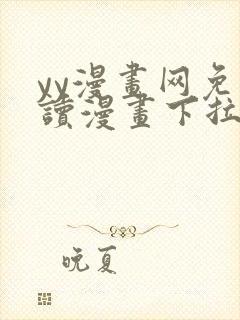 yy漫畫网免
讀漫畫下拉
晚夏